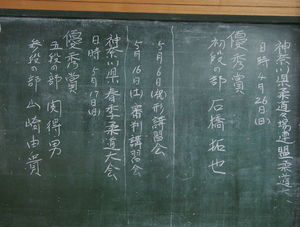 神奈川県柔道々場連盟柔道大
日時 4月26日(日)
優秀賞
初段の部 石橋拓也
5月6日(祝)形講習会
5月16日(土)審判講習会
神奈川県春季柔道大会
日時 5月17日(日)
優秀賞
五段の部 関得男
参段の部 山崎由貴